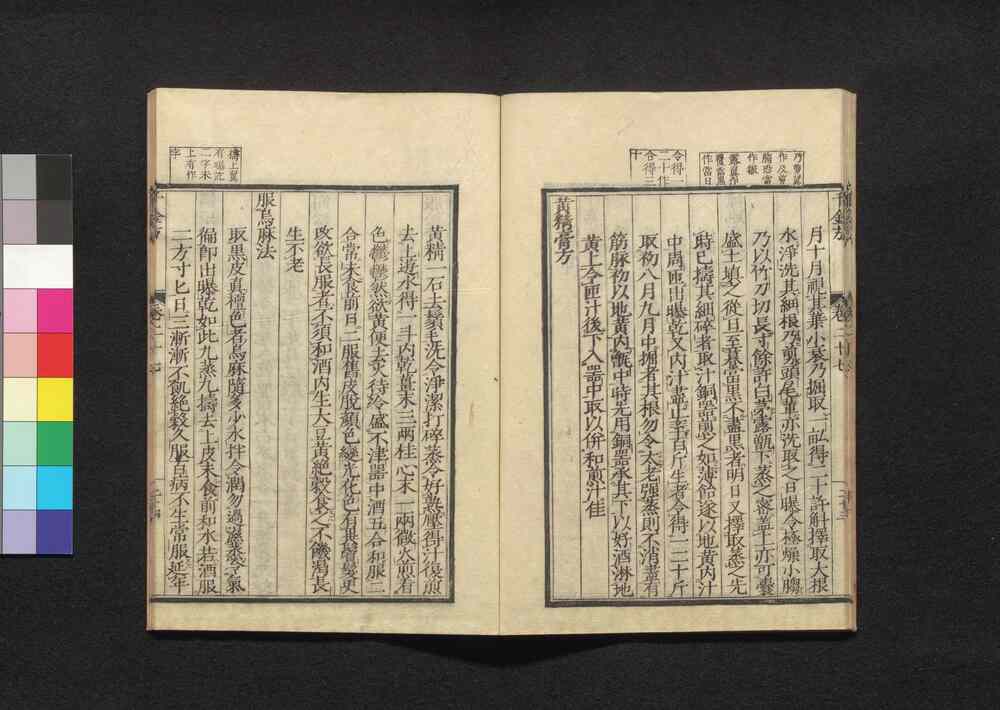 令得一
二十作
合得三
十
月十月視其葉小萎乃掘取一畝得二十許斛擇取大根
水淨洗其細根乃剪頭尾輩亦洗取之日曝令極燥小䐗
乃以竹刀切長寸餘許白茅露甑下蒸之密蓋上亦可囊
盛土填之從旦至暮當黑不盡黑者明日又擇取蒸之先
時已擣其細碎者取汁銅器煎之如薄飴遂以地黄内汁
中周匝出曝乾又内汁盡止率百斤生者令得一二十斤
取初八月九月中掘者其根勿令太老强蒸則不消盡有
筋脉初以地黄内甑中時先用銅器承其下以好酒淋地
黄上令匝汁後下入器中取以併和煎汁佳
黄精膏方
黄精一石去鬚毛洗令淨潔打碎蒸令好熟壓得汁復煎
去上遊水得一斗内乾薑末三兩桂心末一兩微火煎看
色鬱鬱然欲黄便去火待冷盛不津器中酒五合和服二
合常未食前日二服舊皮脱顔色變光花色有異鬢髮更
改欲長服者不須和酒内生大豆黄絶穀食之不飢渴長
生不老
服烏麻法
取黒皮真檀色者烏麻隨多少水拌令潤勿過濕蒸令氣
徧即出曝乾如此九蒸九擣去上皮未食前和水若酒服
二方寸匕日三漸漸不飢絶穀久服百病不生常服延年